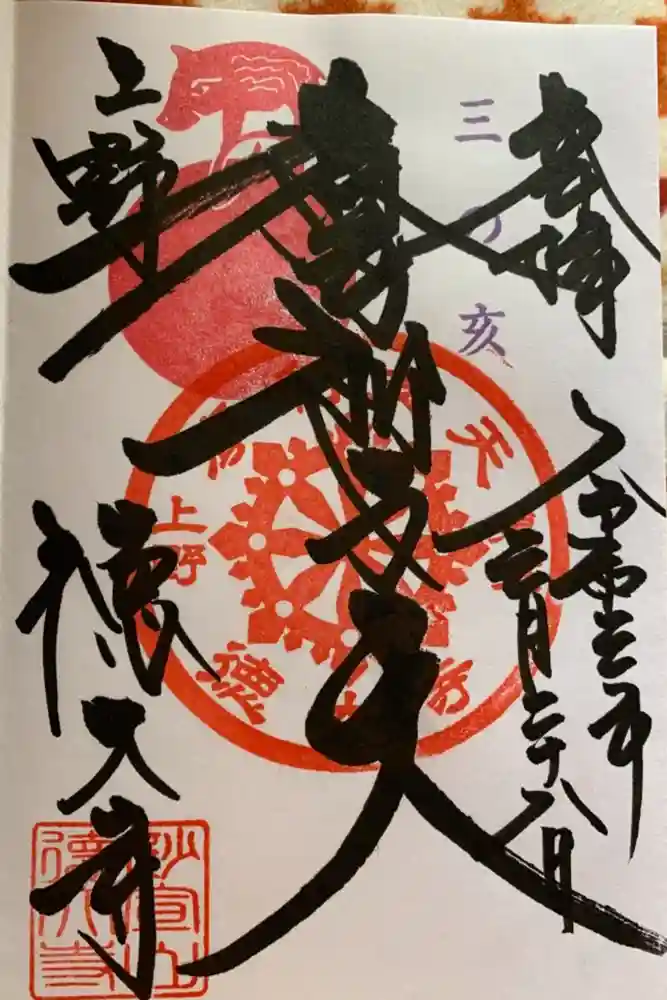 奉拝
令和三年
三月二十八日
三の亥
摩利支天
上野
徳大寺
上野
徳
天
妙宣山
徳大寺